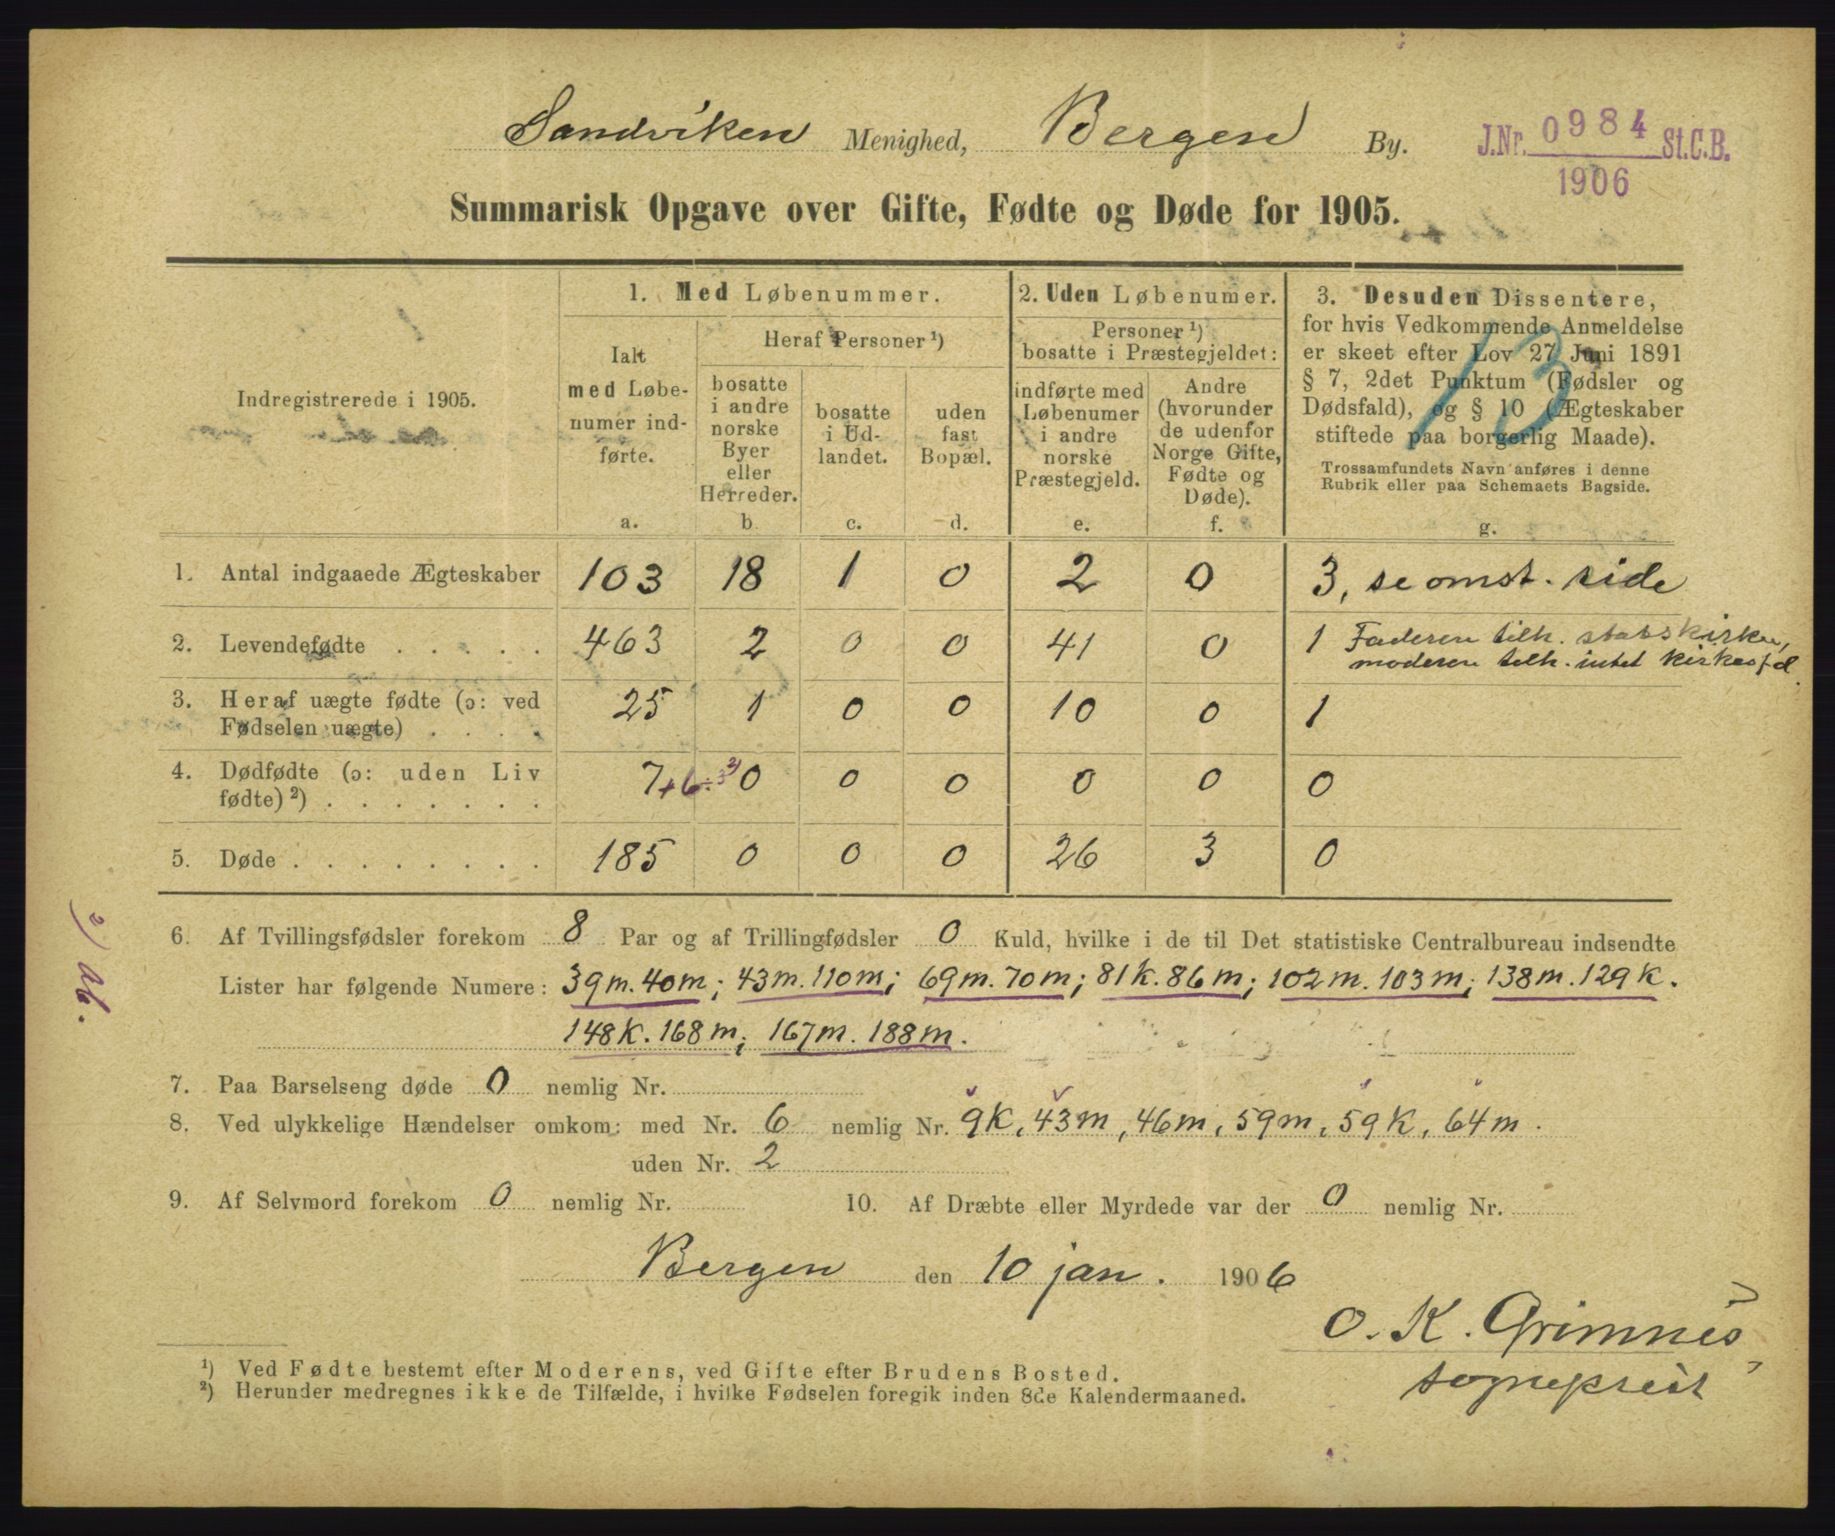 Sandviken Menighed, Bergen By.
J.Nr. 0984 St.C.B.
1906
Summarisk Opgave over Gifte, Fødte og Døde for 1905.
Indregistrerede i 1905.
1. Med Løbenummer.
Ialt
med Løbe-
numer ind-
førte.
a.
Heraf Personer ¹)
bosatte
i andre
norske
Byer
eller
Herreder.
b.
bosatte
i Ud-
landet.
c.
uden
fast
Bopæl.
d.
2. Uden Løbenumer.
Personer ¹)
bosatte i Præstegjeldet:
indførte med
Løbenumer
i andre
norske
Præstegjeld.
e.
Andre
(hvorunder
de udenfor
Norge Gifte,
Fødte og
Døde).
f.
3. Desuden Dissentere,
for hvis Vedkommende Anmeldelse
er skeet efter Lov 27 Juni 1891
§ 7, 2det Punktum (Fødsler og
Dødsfald), og § 10 (Ægteskaber
stiftede paa borgerlig Maade).
Trossamfundets Navn anføres i denne
Rubrik eller paa Schemaets Bagside.
g.
13
1. Antal indgaaede Ægteskaber 103 18 1 0 2 0 3, se omst. side
2. Levendefødte . . . . . 463 2 0 0 41 0 1 Faderen tilh. statskirken,
moderen tilh. intet kirkesfd.
3. Heraf uægte fødte (ɔ: ved
Fødselen uægte) . . . . 25 1 0 0 10 0 1
4. Dødfødte (ɔ: uden Liv
fødte) ²) . . . . . . . 7+6÷3 ²) 0 0 0 0 0 0
5. Døde . . . . . . . . 185 0 0 0 26 3 0
²) Ab.
6. Af Tvillingsfødsler forekom 8 Par og af Trillingfødsler 0 Kuld, hvilke i de til Det statistiske Centralbureau indsendte
Lister har følgende Numere: 39m. 40m; 43m. 110m; 69m. 70m; 81k. 86m; 102m. 103m; 138m. 129k.
148k. 168m; 167m. 188m.
7. Paa Barselseng døde 0 nemlig Nr.
8. Ved ulykkelige Hændelser omkom: med Nr. 6 nemlig Nr. 9k, 43m, 46m, 59m, 59k, 64m.
uden Nr. 2
9. Af Selvmord forekom 0 nemlig Nr. 10. Af Dræbte eller Myrdede var der 0 nemlig Nr.
Bergen den 10 jan. 1906
O. K. Grimnes
sogneprest
¹) Ved Fødte bestemt efter Moderens, ved Gifte efter Brudens Bosted.
²) Herunder medregnes ikke de Tilfælde, i hvilke Fødselen foregik inden 8de Kalendermaaned.